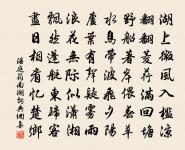 湖上微風入檻涼
翻翻菱荇滿回塘
野船著岸偎春草
水鳥帶波飛夕陽
蘆葉有聲疑霧雨
浪花無際似瀟湘
飄然篷艇東歸客
盡日相看憶楚鄉
溫庭筠南湖詞典網書